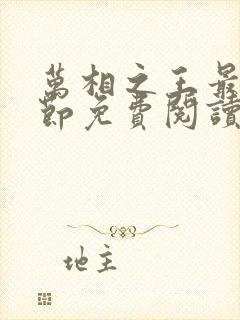 萬相之王最
節免費閱讀
地主